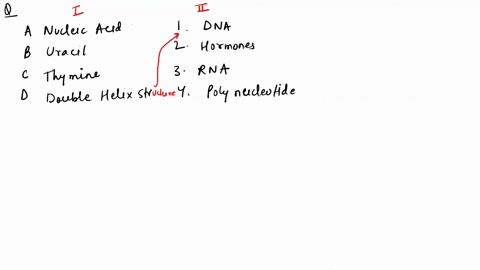 Q I II
A Nucleic Acid 1. DNA
B Uracil 2. Hormones
C Thymine 3. RNA
D Double Helix structure 4. Poly nucleotide